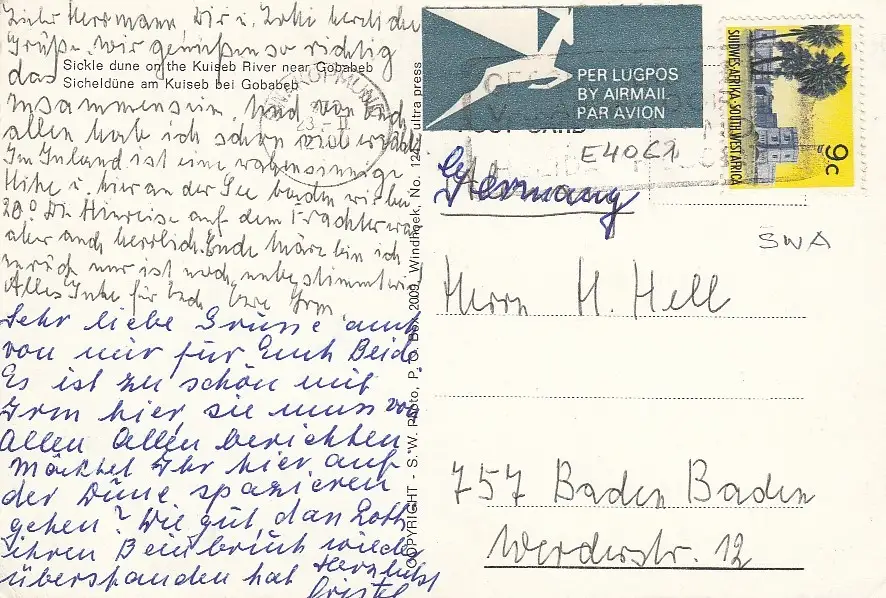 Lieber Herrmann Dir u. Lotti herzliche
Grüße. Wir genießen so richtig
das
Sickle dune on the Kuiseb River near Gobabeb
Sicheldüne am Kuiseb bei Gobabeb
Zusammensein. Und von Euch
allen hab ich schon viel erzählt.
Im Inland ist eine wahnsinnige
Hitze u. hier an der See baden wir bei
20°. Die Hinreise auf dem Frachter war
aber auch herrlich. Ende März bin ich
zurück nur ist noch unbestimmt wie.
Alles Gute für Euch Eure Irm.
Sehr liebe Grüsse auch
von mir für Euch Beide
Es ist zu schön mit
Irm hier, sie muss von
Allen Allen berichten.
Möchtet Ihr hier auf
der Düne spazieren
gehen? Wie gut, das Lotti
ihren Beinbruch wieder
überstanden hat Herzlichst
Cristel
COPYRIGHT - S. W. Photo, P. O. Box 2009, Windhoek, No. 124 ultra press
PER LUGPOS
BY AIRMAIL
PAR AVION
POST CARD
SWAKOPMUND
23 - II
SUIDWES-AFRIKA · SOUTH WEST AFRICA
9c
E4061
Germany
SWA
Herrn H. Hell
757 Baden Baden
Werderstr. 12